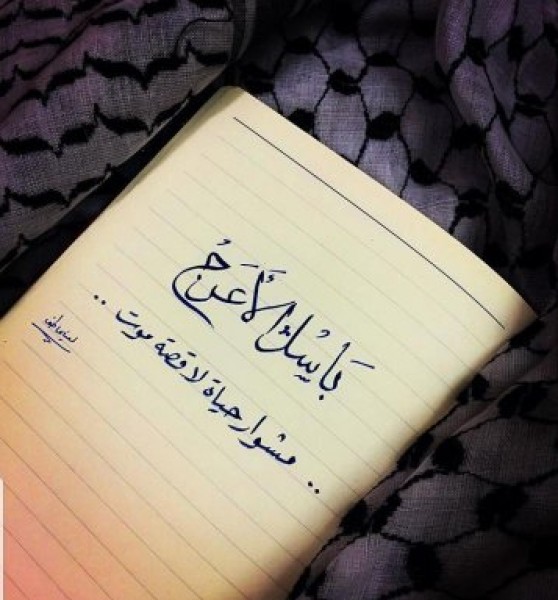 بَاسِلُ الأَعرَجُ
.. مشوار حياة لا قصة موت ..